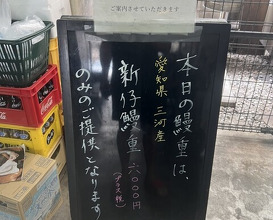 ご案内させていただきます
本日の鰻重は、
愛知県 三河産
新仔鰻重 六〇〇〇円
(プラス税)
のみのご提供となります